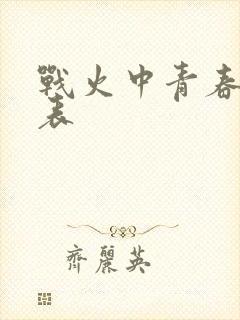 戰火中青春
表
齊麗英